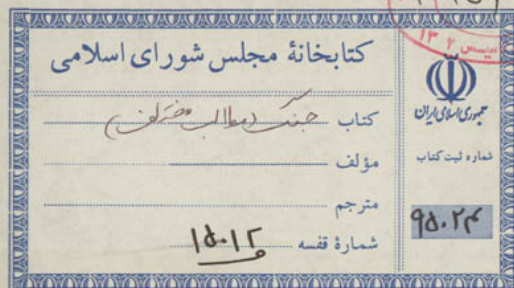 کتابخانهٔ مجلس شورای اسلامی
کتاب جنگ (مطالب مختلف)
مؤلف
مترجم
شمارهٔ قفسه ۱۵۰۱۲
جمهوری اسلامی ایران
شماره ثبت کتاب
۹۵۰۲۴